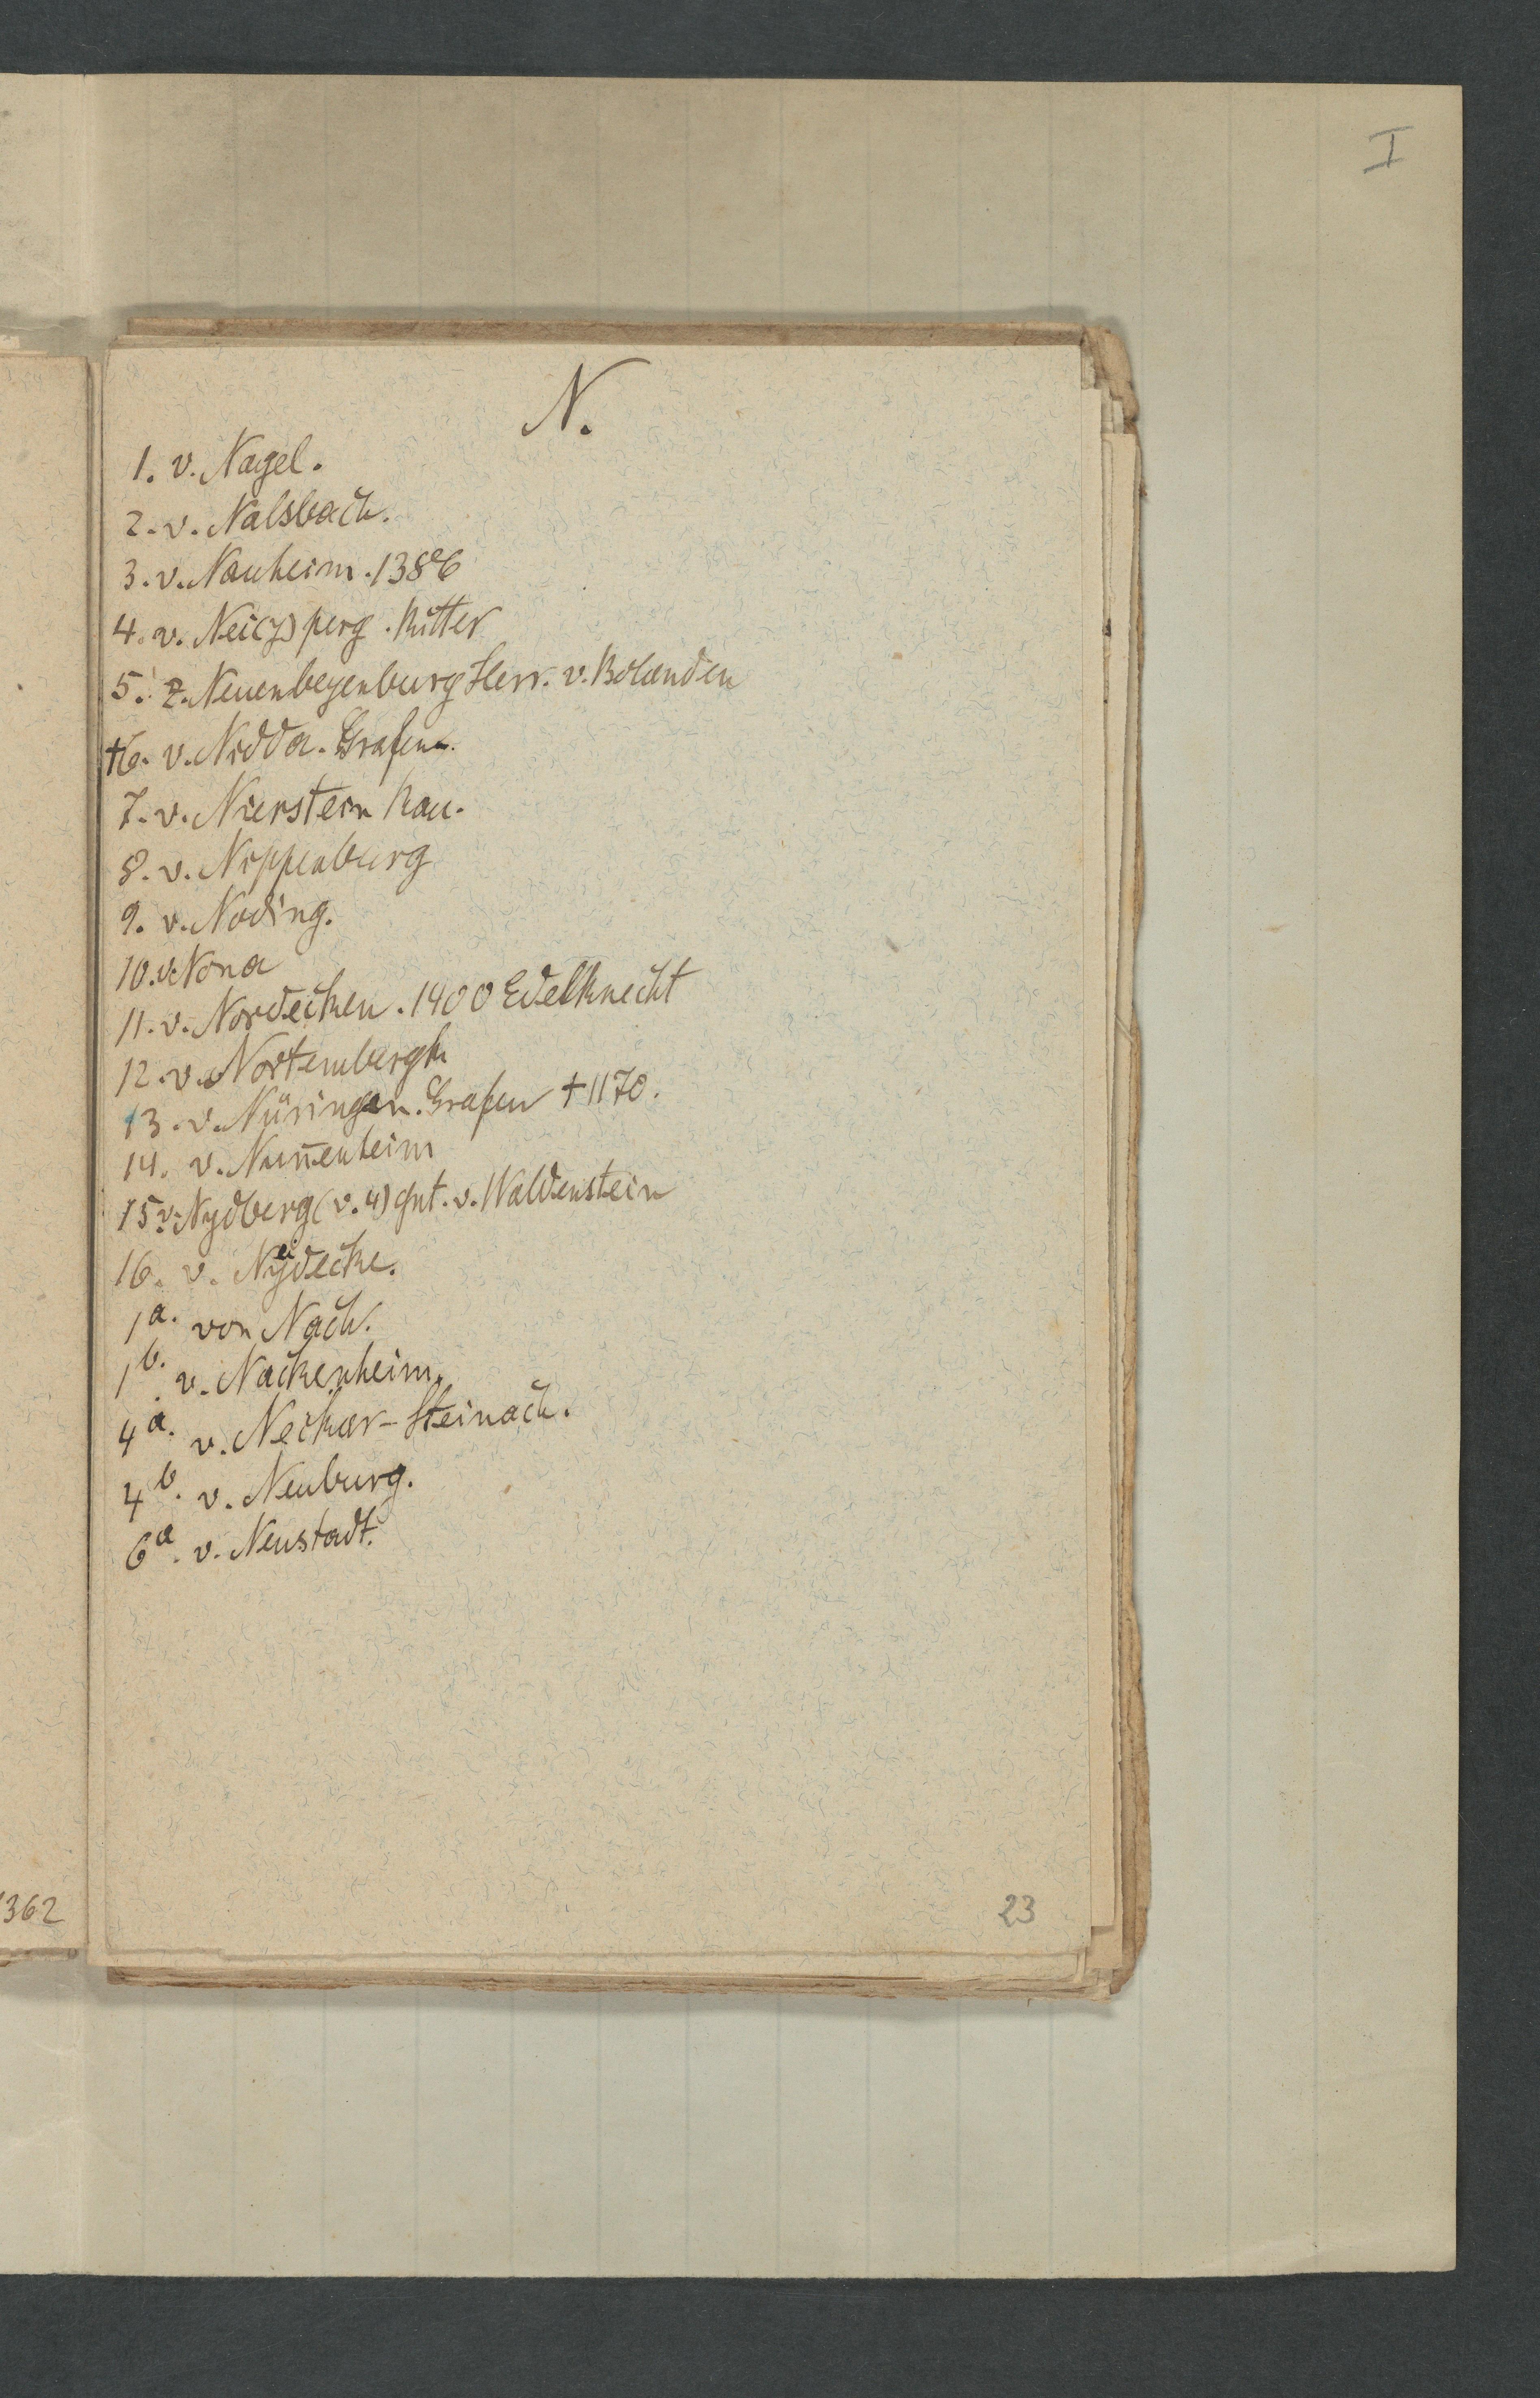 I
N.
1. v. Nagel.
2. v. Nalsbach.
3. v. Nauheim. 1386
4. v. Nei(y)perg. Ritter
5. z. Neuenbeyenburg Herr. v. Bolanden
†6. v. Nidda. Grafen.
7. v. Nierstein Rau.
8. v. Nippenburg
9. v. Noding.
10. v. Nona
11. v. Nordecken. 1400 Edelknecht
12. v. Nortembergh
13. v. Nüringen. Grafen † 1170.
14. v. Nun̄enheim
15. v. Nydberg (v. 4) gnt. v. Waldenstein
16. v. Nydecke.
1a. von Nach.
1b. v. Nackenheim.
4a. v. Neckar-Steinach.
4b. v. Neuburg.
6a. v. Neustadt.
362
23